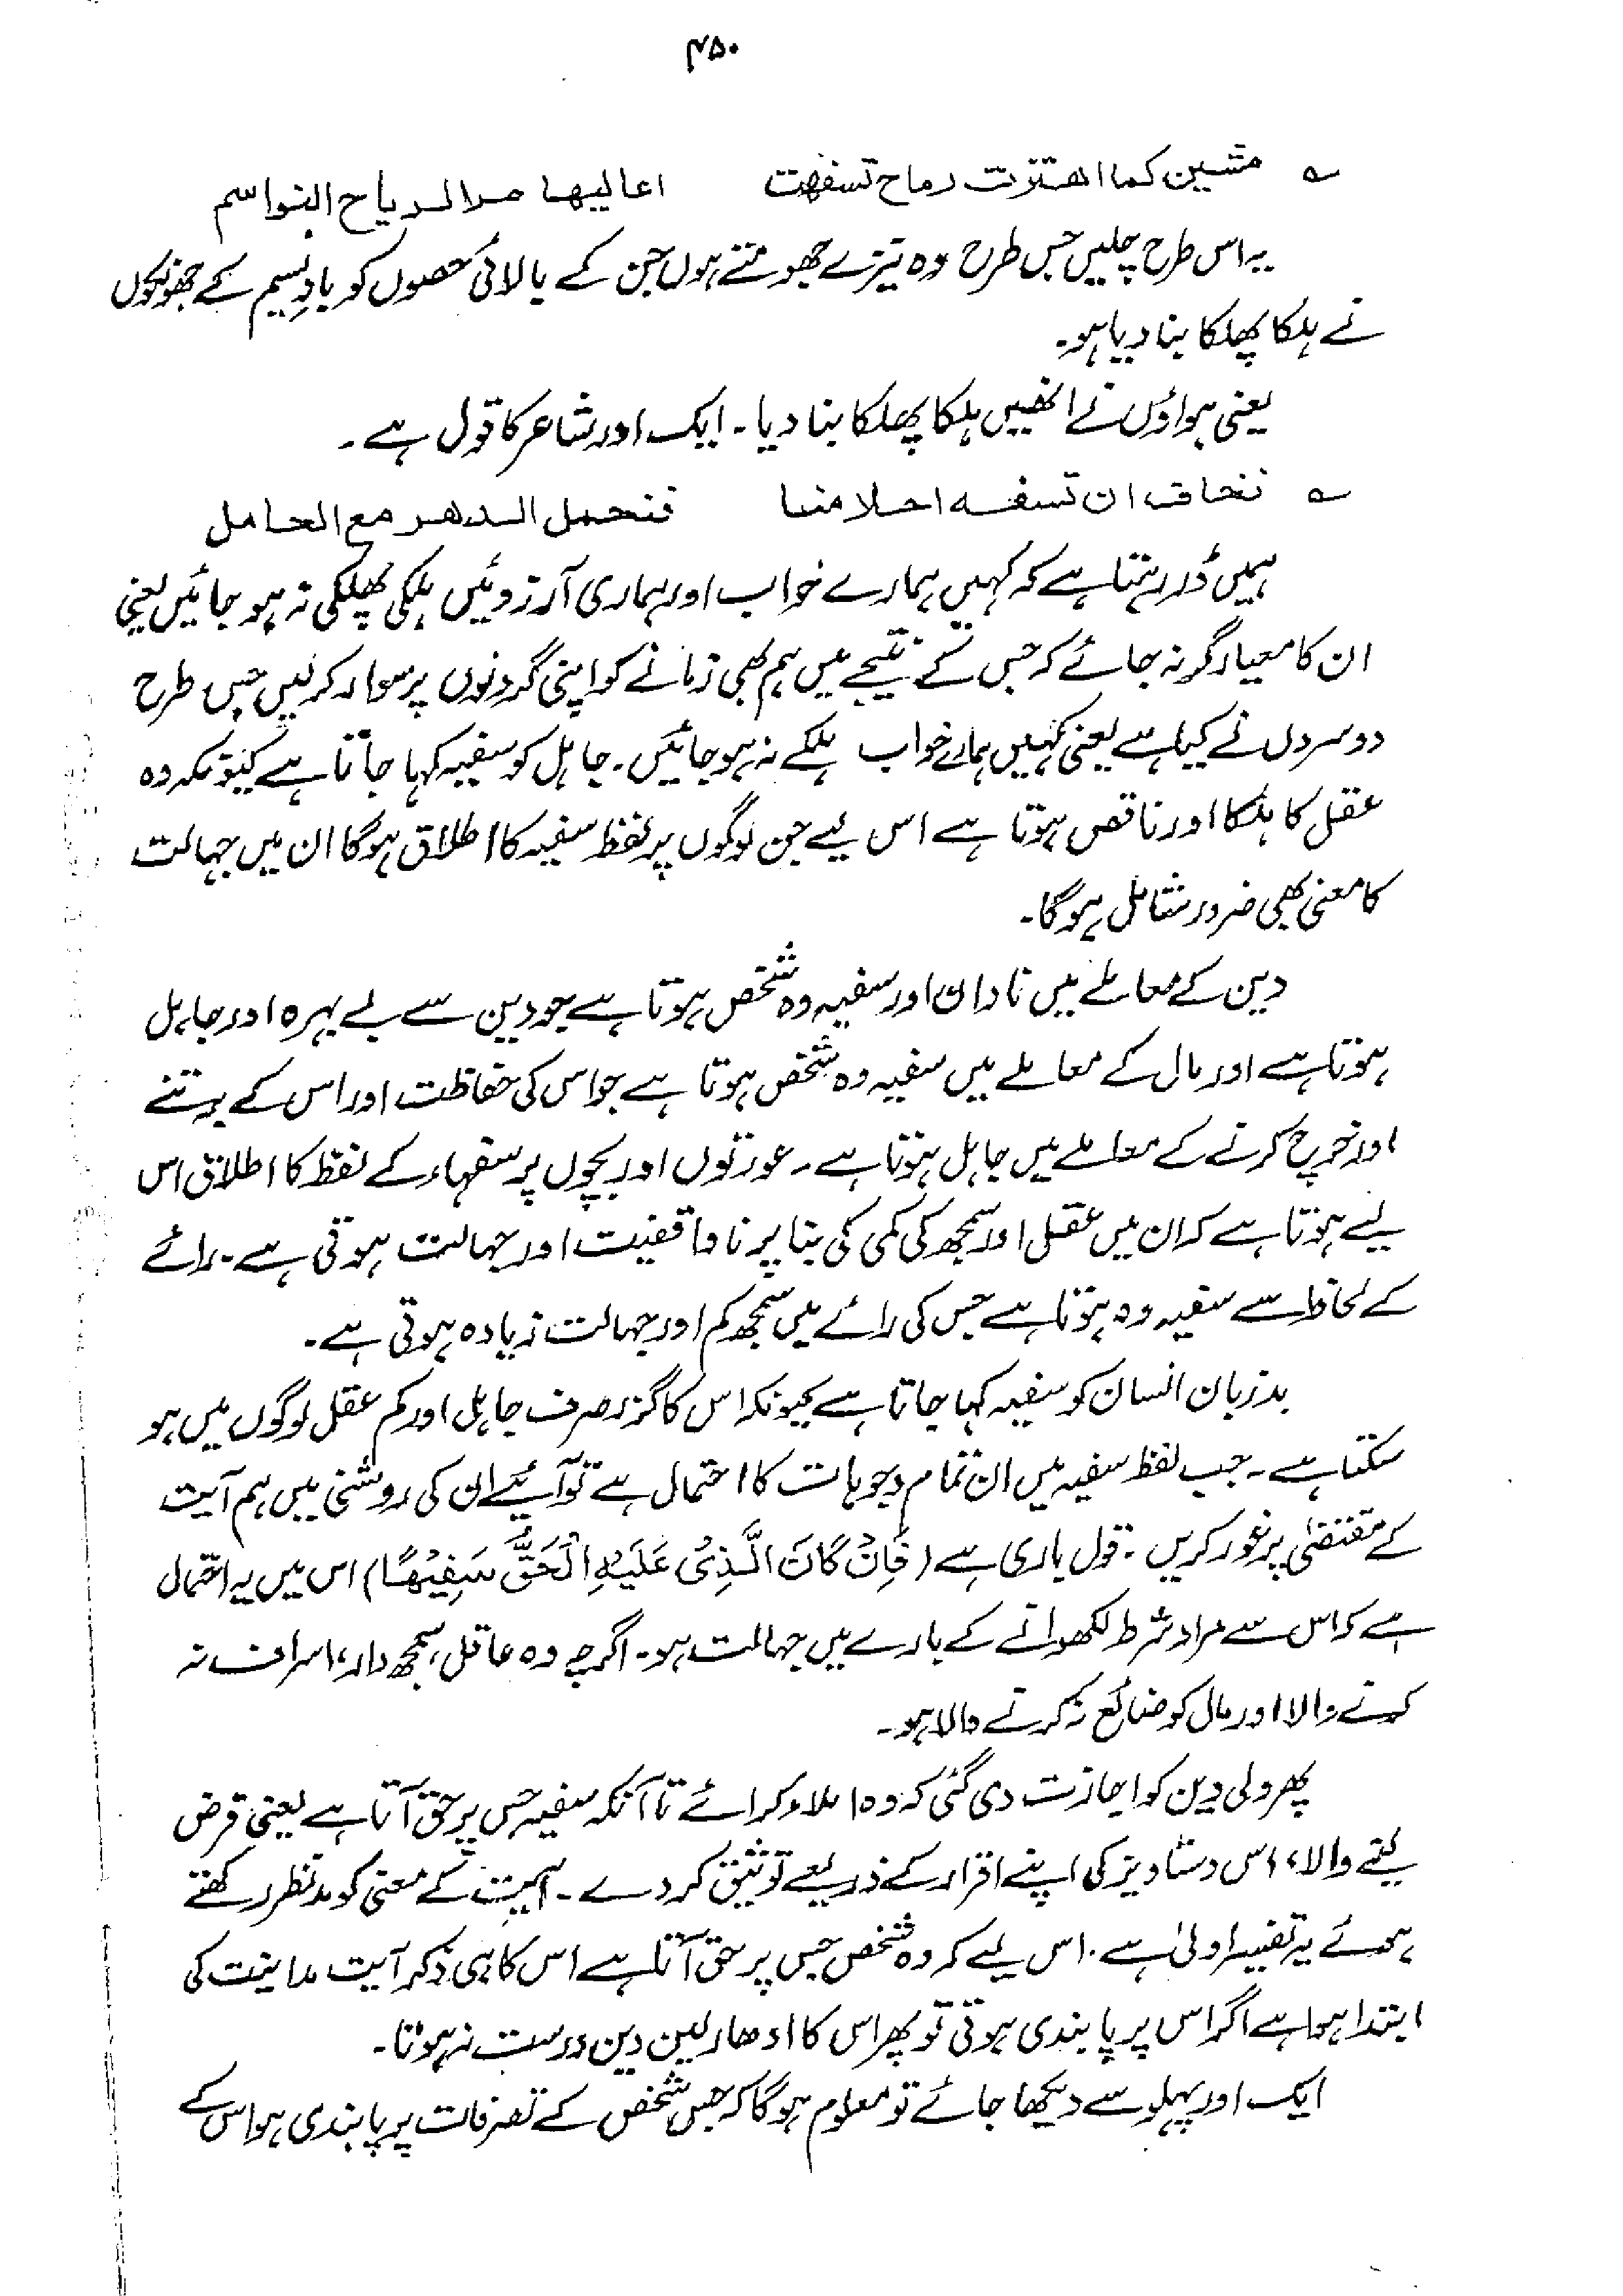 ۴۵۰
ے مشین کما اھتزت رماح تسفھت اعالیھا مرالریاح النواسم
یہ اس طرح چلیں جس طرح وہ نیزے جھومتے ہوں جن کے بالائی حصوں کو بادِ نسیم کے جھونکوں
نے ہلکا پھلکا بنا دیا ہو۔
یعنی ہواؤں نے انھیں ہلکا پھلکا بنا دیا۔ ایک اور شاعر کا قول ہے۔
ے نخاف ان تسفہ احلامنا فنحمل الدھر مع الحامل
ہمیں ڈر رہتا ہے کہ کہیں ہمارے خواب اور ہماری آرزوئیں ہلکی پھلکی نہ ہو جائیں یعنی
ان کا معیار گر نہ جائے کہ جس کے نتیجے میں ہم بھی زمانے کو اپنی گردنوں پر سوار کر لیں جس طرح
دوسروں نے کیا ہے یعنی کہیں ہمارے خواب ہلکے نہ ہو جائیں۔ جاہل کو سفیہ کہا جاتا ہے کیونکہ وہ
عقل کا ہلکا اور ناقص ہوتا ہے اس لیے جن لوگوں پر لفظ سفیہ کا اطلاق ہوگا ان میں جہالت
کا معنی بھی ضرور شامل ہوگا۔
دین کے معاملے میں نادان اور سفیہ وہ شخص ہوتا ہے جو دین سے بے بہرہ اور جاہل
ہوتا ہے اور مال کے معاملے میں سفیہ وہ شخص ہوتا ہے جو اس کی حفاظت اور اس کے برتنے
اور خرچ کرنے کے معاملے میں جاہل ہوتا ہے۔ عورتوں اور بچوں پر سفہاء کے لفظ کا اطلاق اس
لیے ہوتا ہے کہ ان میں عقل اور سمجھ کی کمی کی بنا پر ناواقفیت اور جہالت ہوتی ہے۔ رائے
کے لحاظ سے سفیہ وہ ہوتا ہے جس کی رائے میں سمجھ کم اور جہالت زیادہ ہوتی ہے۔
بدزبان انسان کو سفیہ کہا جاتا ہے کیونکہ اس کا گزر صرف جاہل اور کم عقل لوگوں میں ہو
سکتا ہے۔ جب لفظ سفیہ میں ان تمام وجوہات کا احتمال ہے تو آئیے ان کی روشنی میں ہم آیت
کے مقتضیٰ پر غور کریں۔ قول باری ہے (فَاِنْ كَانَ الَّذِیْ عَلَیْهِ الْحَقُّ سَفِیْهًا) اس میں یہ احتمال
ہے کہ اس سے مراد شرط لکھوانے کے بارے میں جہالت ہو۔ اگرچہ وہ عاقل، سمجھ دار، اسراف نہ
کرنے والا اور مال کو ضائع نہ کرنے والا ہو۔
پھر ولی دین کو اجازت دی گئی کہ وہ املاء کرائے تاآنکہ سفیہ جس پر حق آتا ہے یعنی قرض
لینے والا، اس دستاویز کی اپنے اقرار کے ذریعے توثیق کردے۔ آیت کے معنی کو مدنظر رکھتے
ہوئے یہ تفسیر اولیٰ ہے۔ اس لیے کہ وہ شخص جس پر حق آتا ہے اس کا ہی ذکر آیت مداینت کی
ابتدا ہوا ہے اگر اس پر پابندی ہوتی تو پھر اس کا ادھار لین دین درست نہ ہوتا۔
ایک اور پہلو سے دیکھا جائے تو معلوم ہوگا کہ جس شخص کے تصرفات پر پابندی ہو اس کے